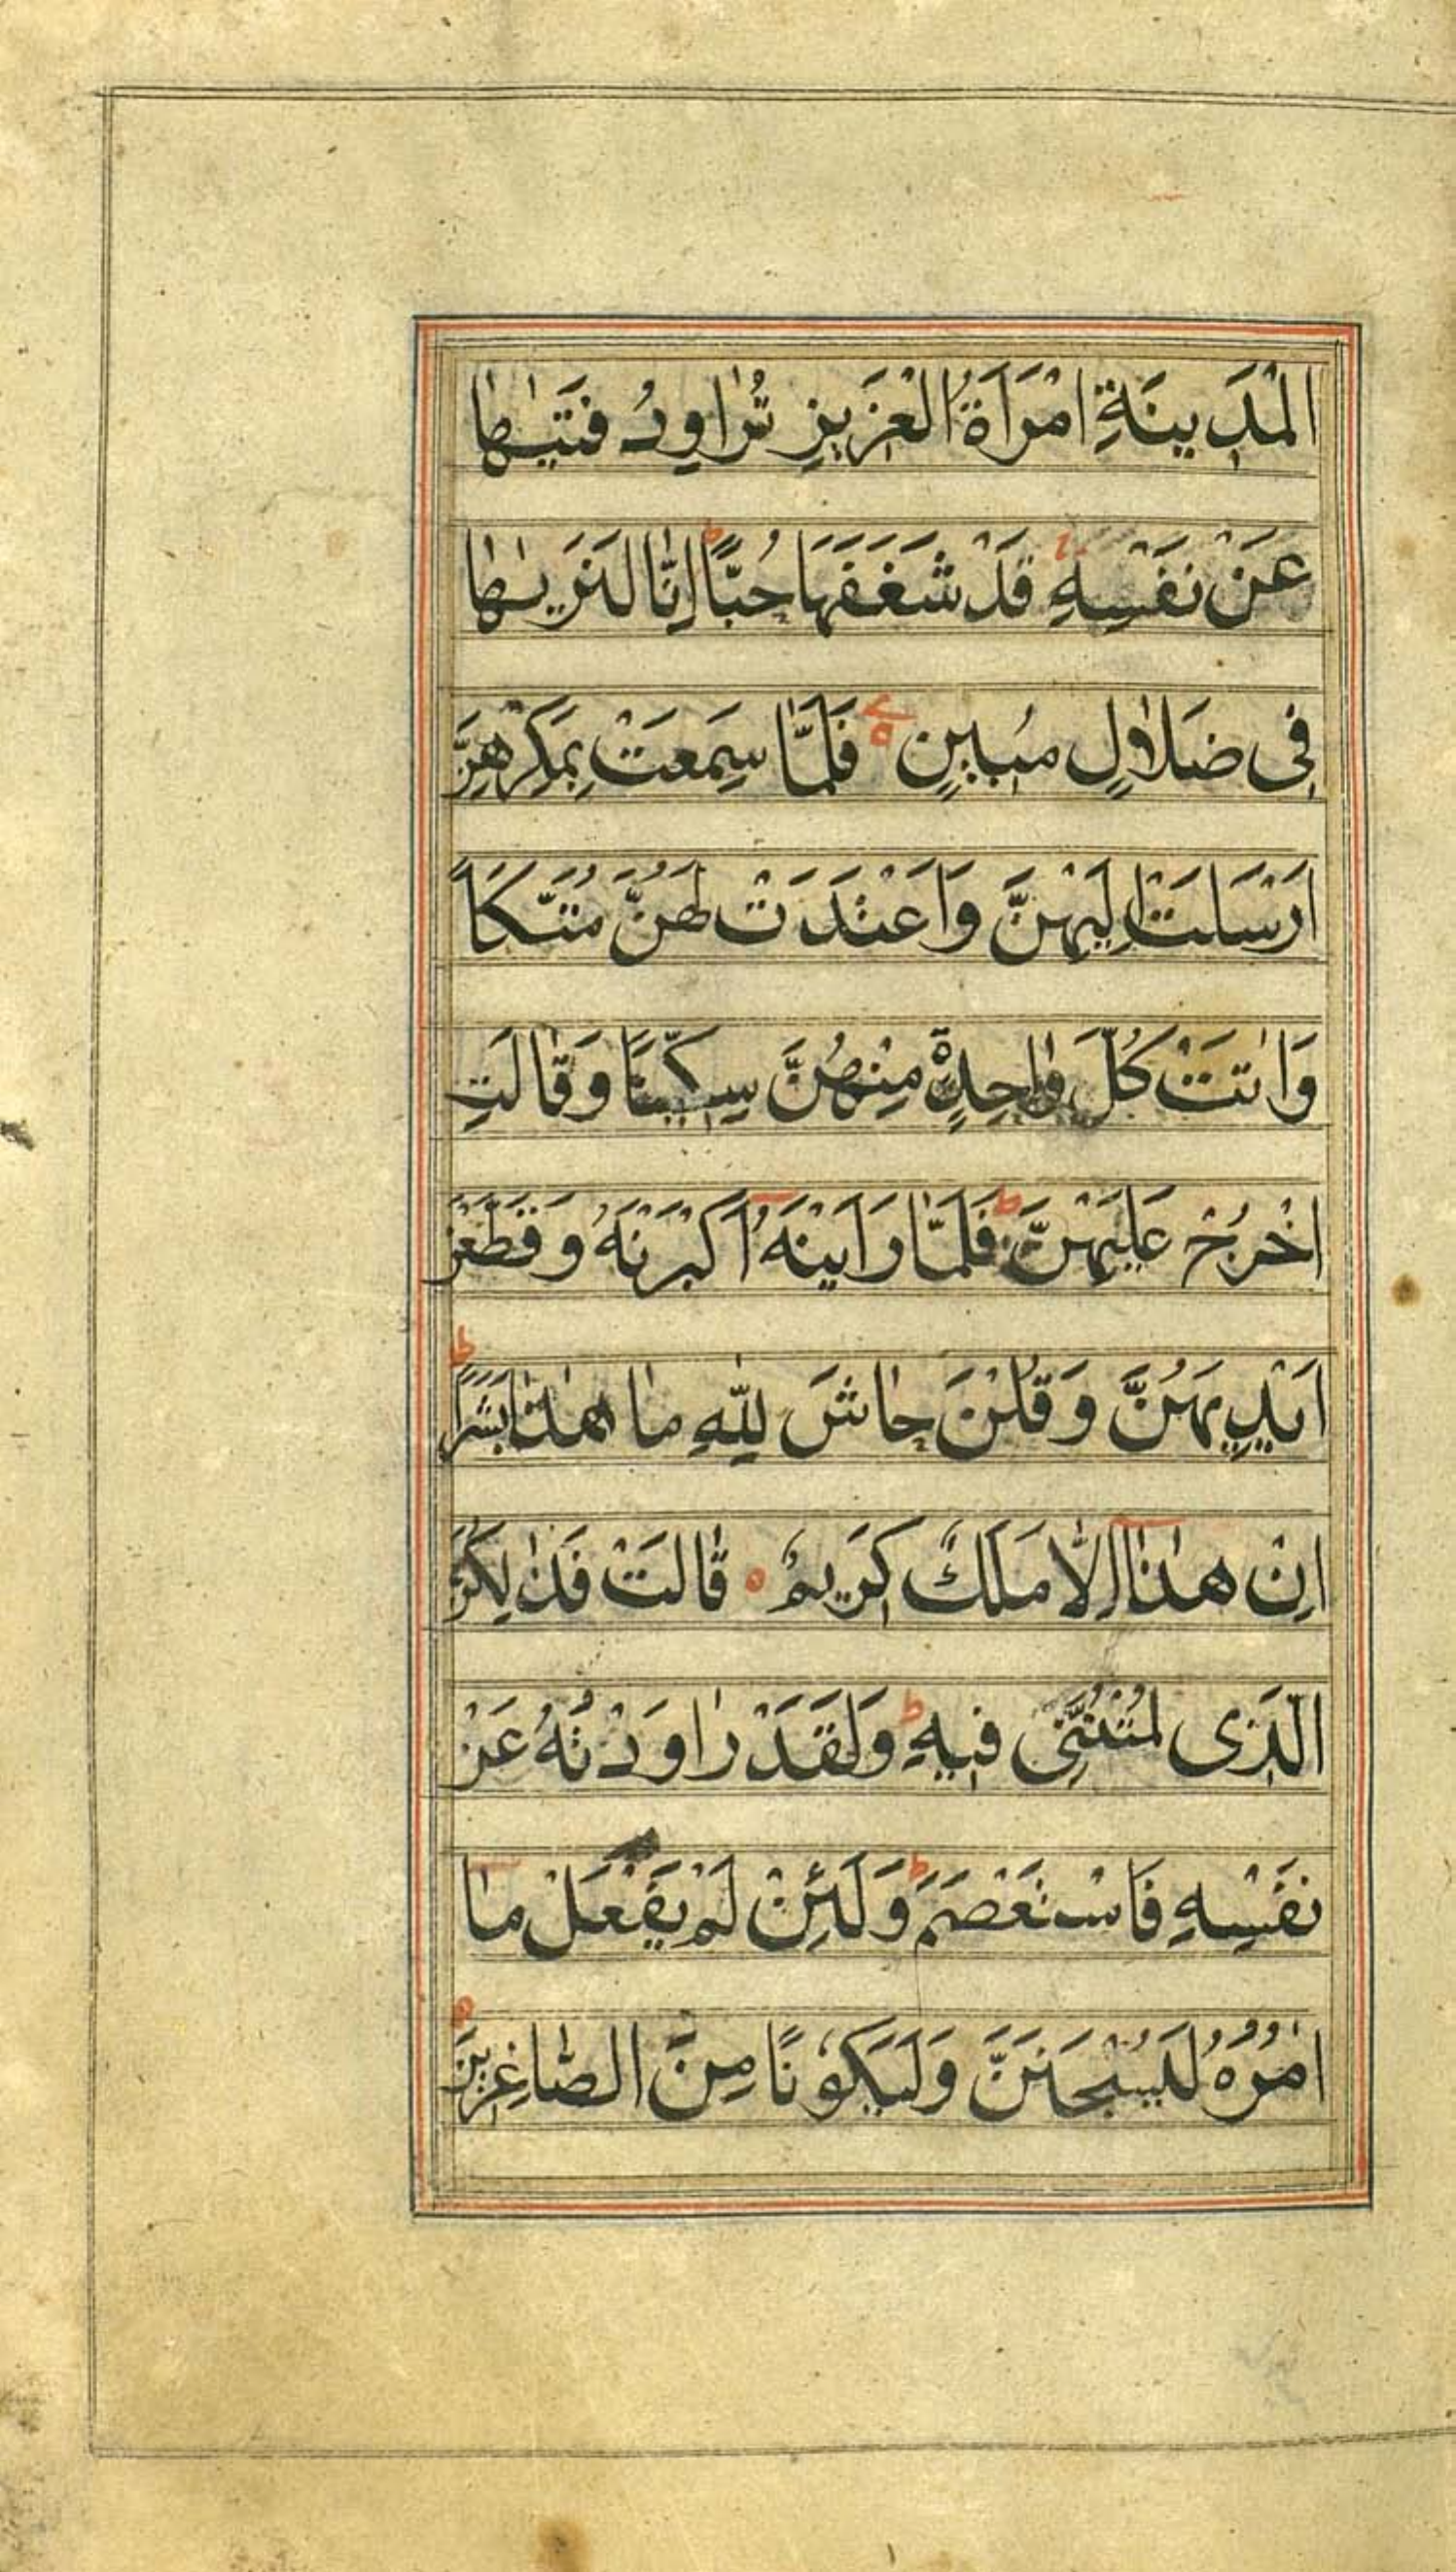 الْمَدِينَةِ امْرَاَةُ الْعَزِيزِ تُرٰاوِدُ فَتَيٰهٰا
عَنْ نَفْسِهِ قَدْ شَغَفَهَا حُبًّا ط اِنّٰا لَنَرَيٰهٰا
فِى ضَلٰالٍ مُبِينٍ فَلَمّٰا سَمِعَتْ بِمَكْرِهِنَّ
اَرْسَلَتْ اِلَيْهِنَّ وَاَعْتَدَتْ لَهُنَّ مُتَّكَاً
وَاٰتَتْ كُلَّ وٰاحِدَةٍ مِنْهُنَّ سِكِّينًا وَقٰالَتِ
اخْرُجْ عَلَيْهِنَّ ط فَلَمّٰا رَاَيْنَهُ اَكْبَرْنَهُ وَقَطَّعْنَ
اَيْدِيَهُنَّ وَقُلْنَ حٰاشَ لِلّٰهِ مٰا هٰذٰا بَشَرًا ط
اِنْ هٰذٰا اِلّٰا مَلَكٌ كَرِيمٌ ه قٰالَتْ فَذٰلِكُنَّ
الَّذِى لُمْتُنَّنِى فِيهِ ط وَلَقَدْ رٰاوَدْتُهُ عَنْ
نَفْسِهِ فَاسْتَعْصَمَ ط وَلَئِنْ لَمْ يَفْعَلْ مٰا
اٰمُرُهُ لَيُسْجَنَنَّ وَلَيَكُونًا مِنَ الصّٰاغِرِينَ ه